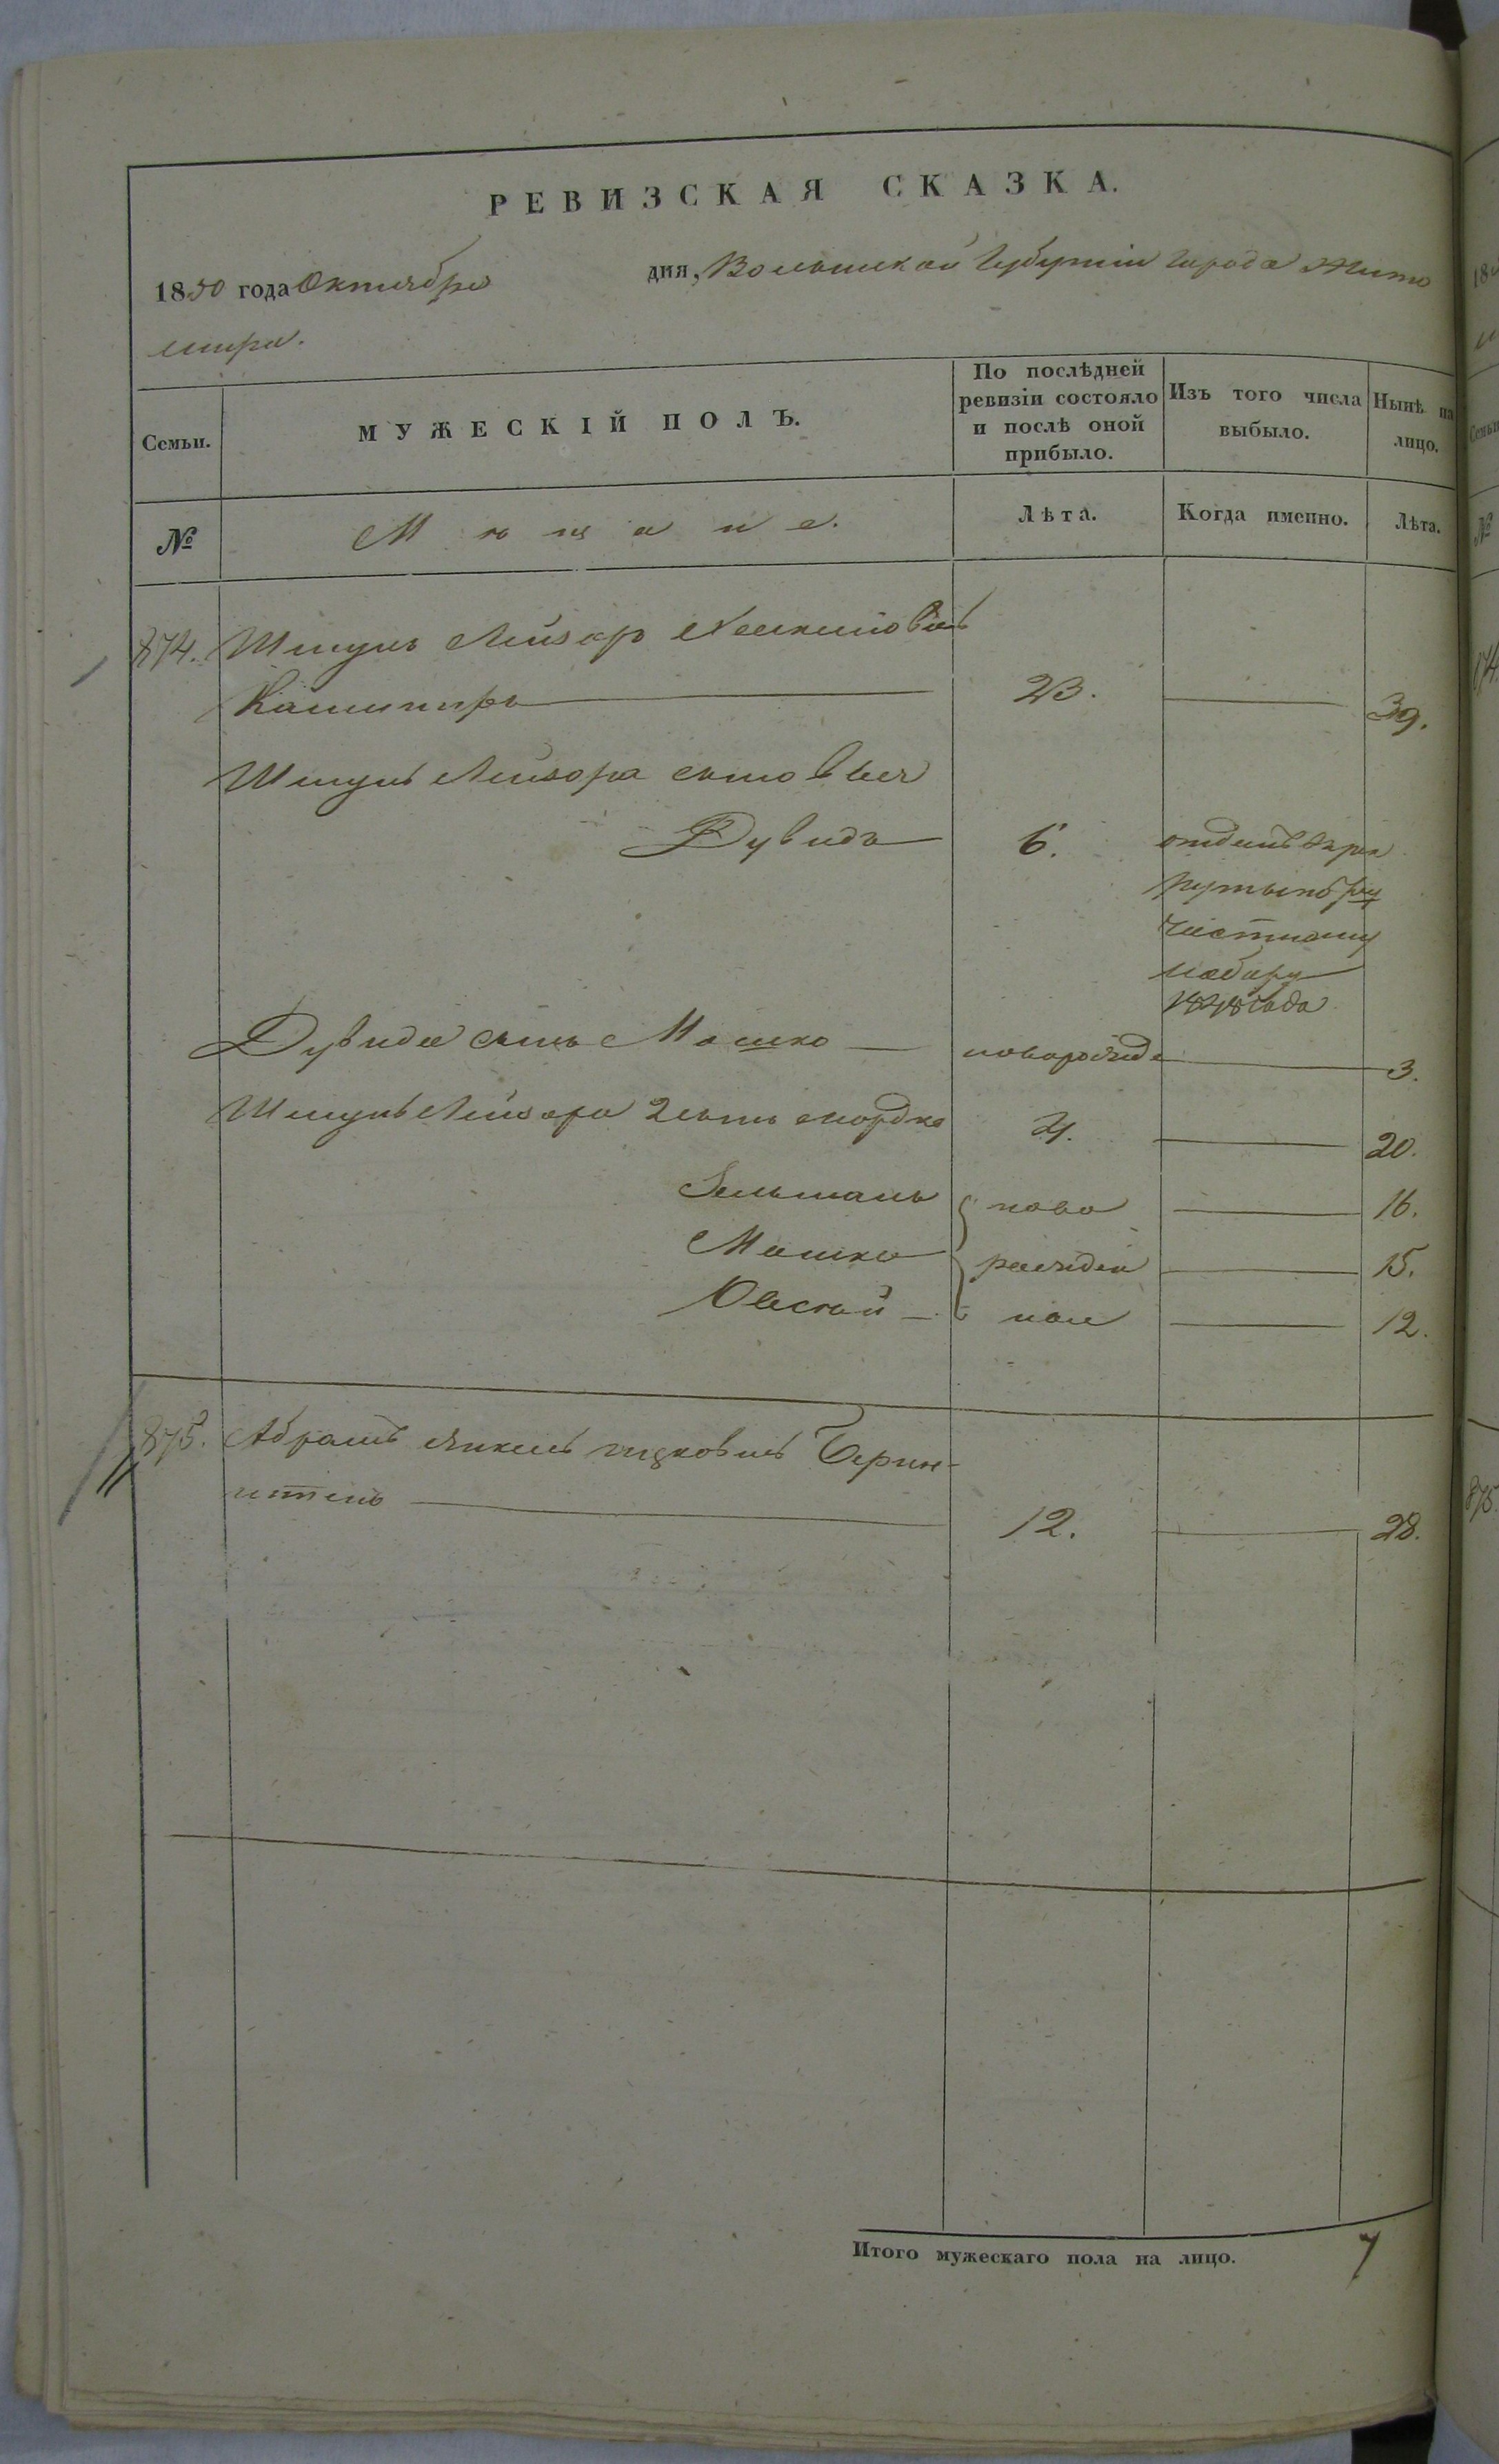 РЕВИЗСКАЯ СКАЗКА.
1850 года Октября дня, Волынской Губерніи города Жито
мира.
Семьи.
МУЖЕСКІЙ ПОЛЪ.
По послѣдней ревизіи состояло и послѣ оной прибыло.
Изъ того числа выбыло.
Нынѣ на лицо.
№
Мещане.
Лѣта.
Когда именно.
Лѣта.
874. Шмуль Лейзоръ
Кашпиръ 23. 39.
Шмуль Лейзора сыновья
Дувидъ 6. отданъ въ рек
руты по
частному
набору
1848 года
Дувида сынъ Мошко новорожде 3.
Шмуль Лейзора 2 сынъ Мордко 4. 20.
Зельманъ ново 16.
Мошко рожден 15.
Овсей ные 12.
875. Абрамъ Янкель Ицковичъ Берин-
штейнъ 12. 28.
Итого мужескаго пола на лицо. 7